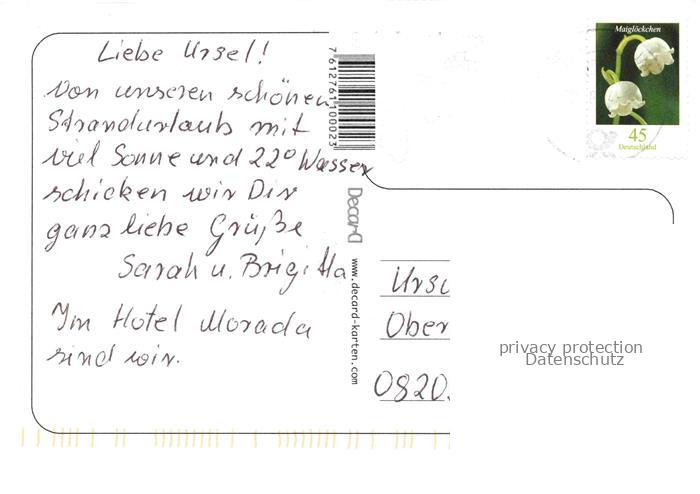 Liebe Ursel!
Von unseren schönen
Strandurlaub mit
viel Sonne und 22° Wasser
schicken wir Dir
ganz liebe Grüße
Sarah u. Brigitta
Im Hotel Morada
sind wir.
7612761100023
Decard
www.decard-karten.com
Maiglöckchen
45
Deutschland
Ursu
Ober
0820
privacy protection
Datenschutz